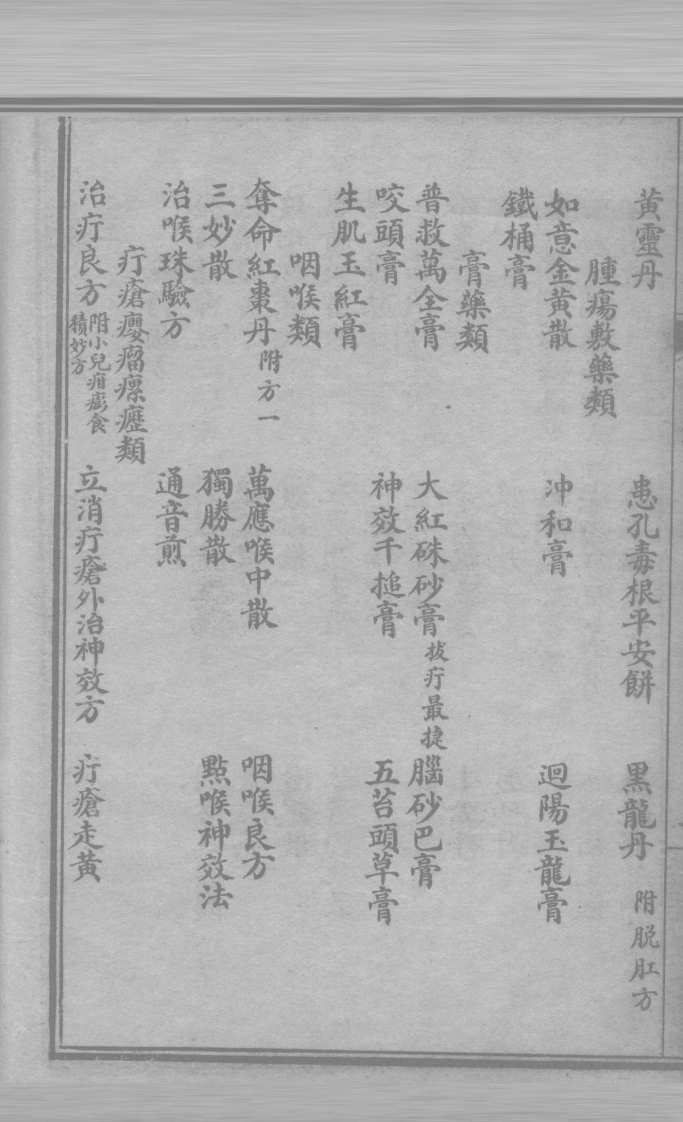 黃靈丹　患孔毒根平安餅　黑龍丹　附脫肛方
腫瘍敷藥類
如意金黃散　冲和膏　迴陽玉龍膏
鐵桶膏
膏藥類
普救萬全膏　大紅硃砂膏　拔疔最捷　腦砂巴膏
咬頭膏　神效千搥膏　五苔頭草膏
生肌玉紅膏
咽喉類
奪命紅棗丹　附方一　萬應喉中散　咽喉良方
三妙散　獨勝散　點喉神效法
治喉珠驗方　通音煎
疔瘡癭瘤瘰癧類
治疔良方　附小兒疳膨食積妙方　立消疔瘡外治神效方　疔瘡走黃